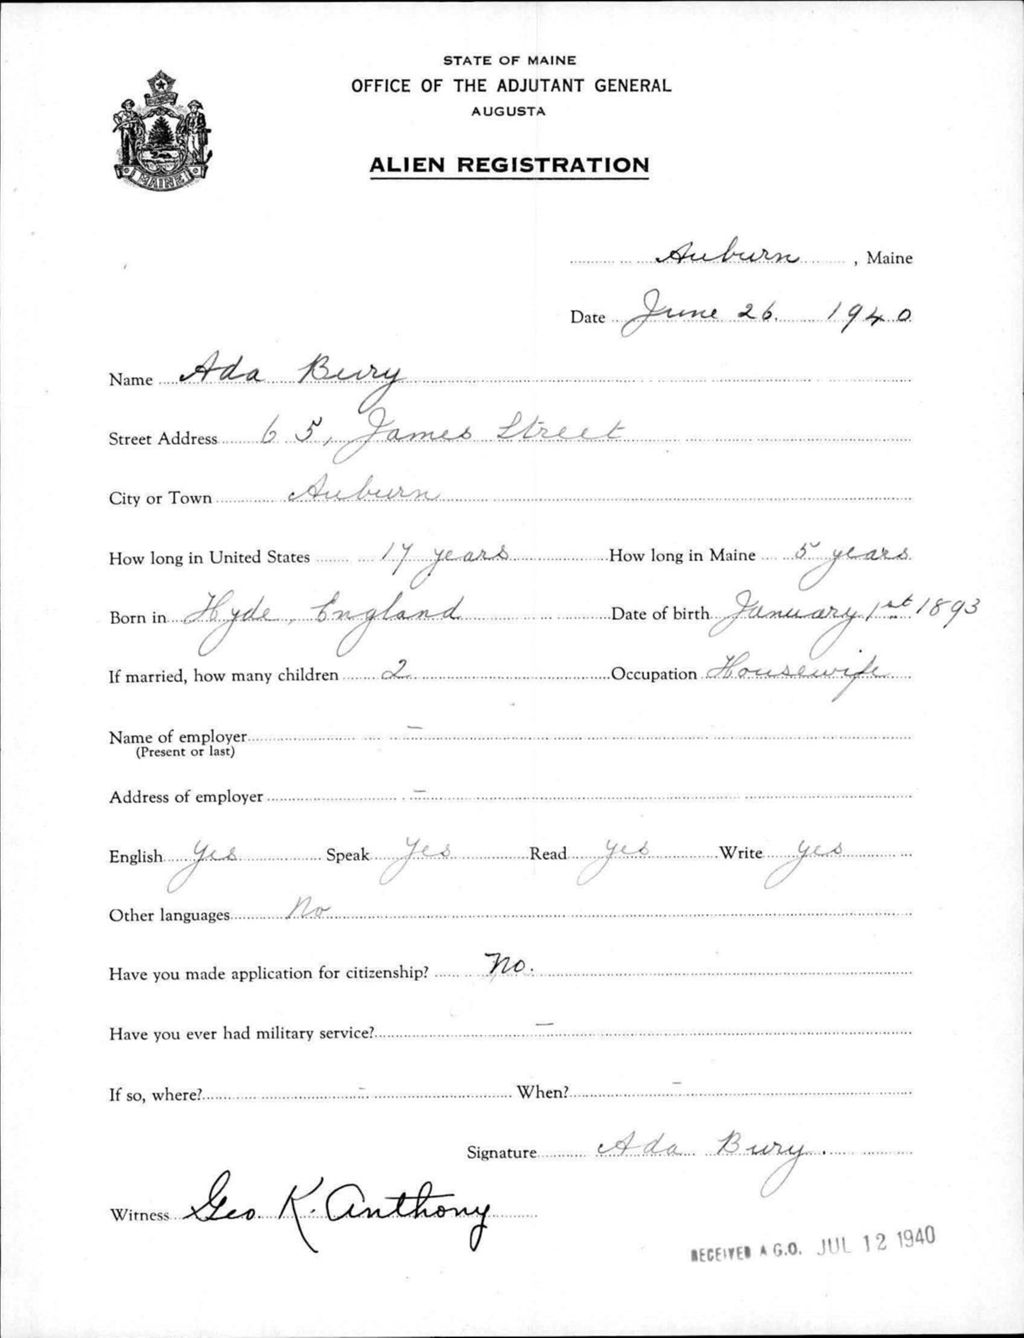 STATE OF MAINE
OFFICE OF THE ADJUTANT GENERAL
AUGUSTA
MAINE
ALIEN REGISTRATION
Auburn, Maine
Date June 26. 1940
Name Ada Bury
Street Address 65, James Street
City or Town Auburn
How long in United States 17 years How long in Maine 5 years
Born in Hyde, England Date of birth January 1st 1893
If married, how many children 2 Occupation Housewife
Name of employer –
(Present or last)
Address of employer –
English Yes Speak Yes Read yes Write yes
Other languages No
Have you made application for citizenship? No.
Have you ever had military service? –
If so, where? – When? –
Signature Ada Bury.
Witness Geo. K. Anthony
RECEIVED A.G.O. JUL 12 1940